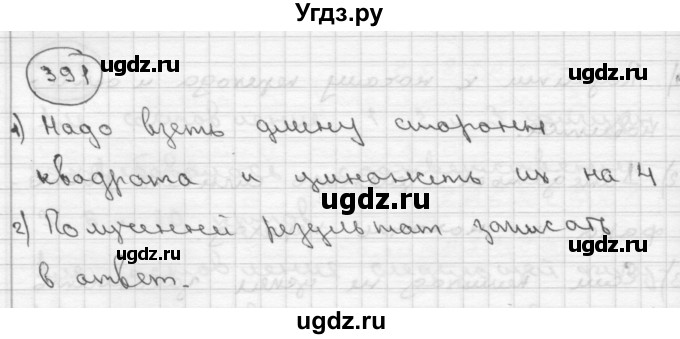 Угдз.ру
391
ugdz.ru ugdz.ru
1) Надо взять длину стороны
ugdz.ru
квадрата и умножить их на 4
ugdz.ru
2) Полученный результат записать
в ответ.
ugdz.ru ugdz.ru
ugdz.ru